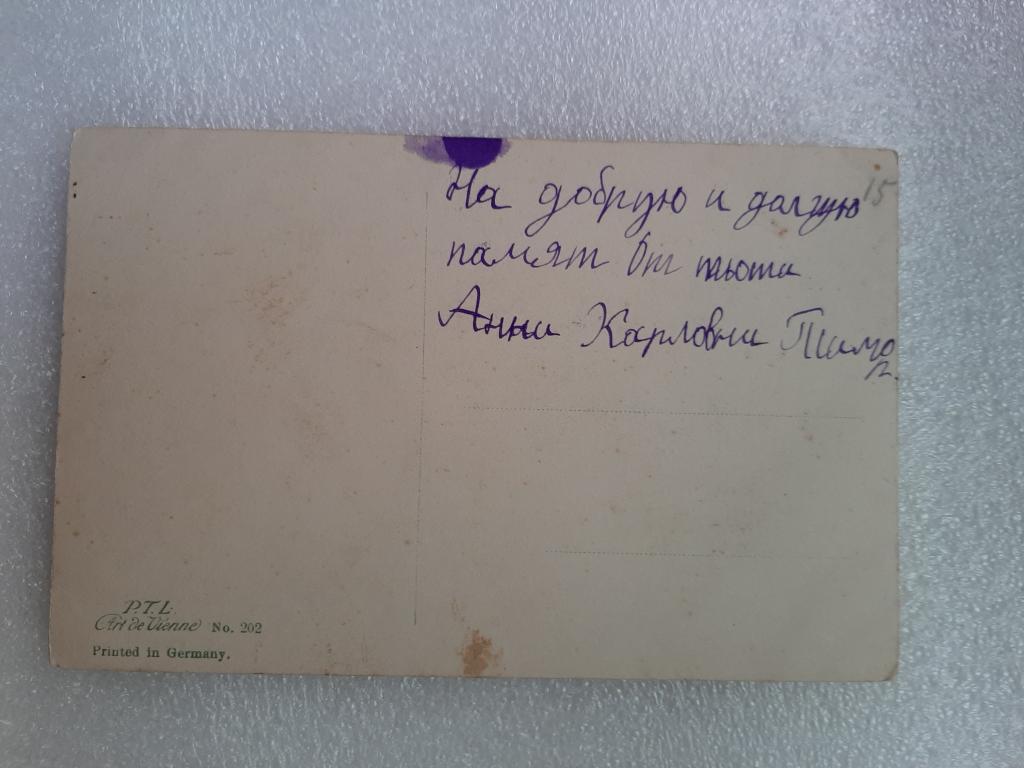 15
На добрую и долгую
памят От тьоти
Анни Карловни Тимо
P.T.L.
Art de Vienne No. 202
Printed in Germany.